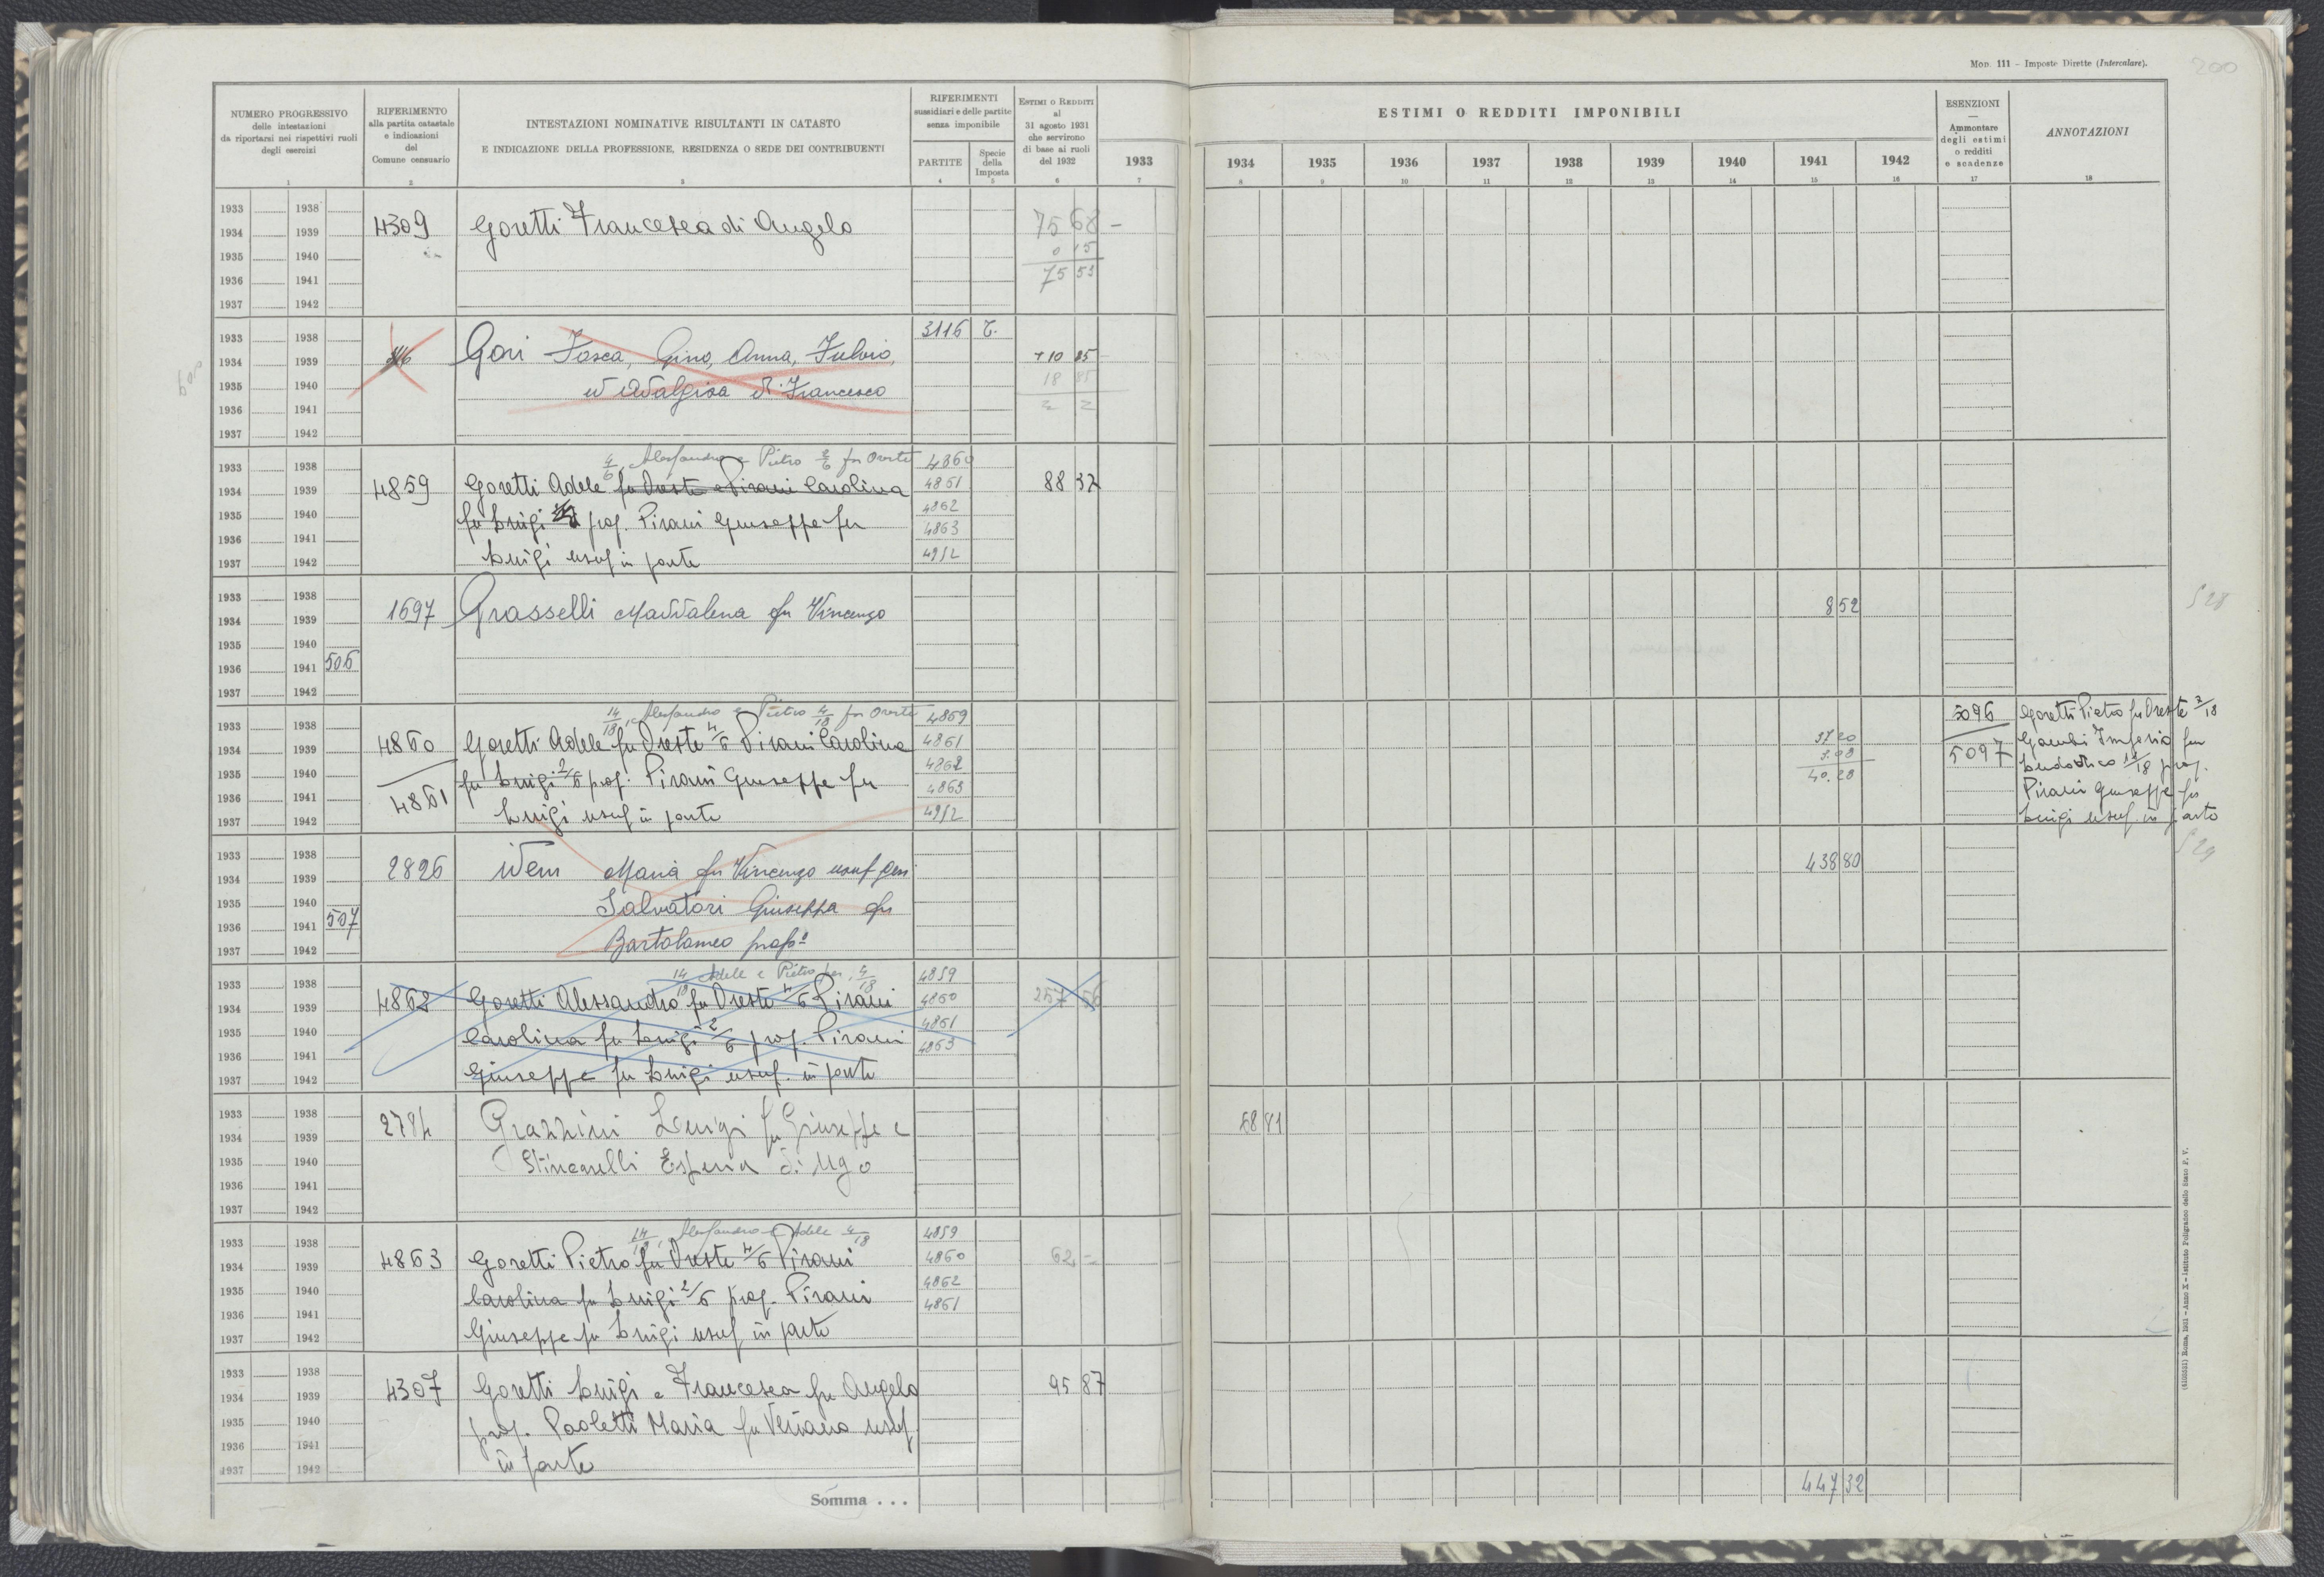 Mod. 111 - Imposte Dirette (Intercalare).
200
NUMERO PROGRESSIVO
delle intestazioni
da riportarsi nei rispettivi ruoli
degli esercizi
1
RIFERIMENTO
alla partita catastale
e indicazioni
del
Comune censuario
2
INTESTAZIONI NOMINATIVE RISULTANTI IN CATASTO
E INDICAZIONE DELLA PROFESSIONE, RESIDENZA O SEDE DEI CONTRIBUENTI
3
RIFERIMENTI
sussidiari e delle partite
senza imponibile
PARTITE
4
Specie
della
Imposta
5
ESTIMI O REDDITI
al
31 agosto 1931
che servirono
di base ai ruoli
del 1932
6
1933
7
ESTIMI O REDDITI IMPONIBILI
1934 1935 1936 1937 1938 1939 1940 1941 1942
8 9 10 11 12 13 14 15 16
ESENZIONI
—
Ammontare
degli estimi
o redditi
e scadenze
17
ANNOTAZIONI
18
1933 1938
1934 1939 4309 Goretti Francesca di Angelo 75 68 -
1935 1940 0 15
1936 1941 75 53
1937 1942
1933 1938 3116 T.
1934 1939 Gori Tosca, Gino, Anna, Fulvio, 10 85
1935 1940 ed Adalgisa di Francesco 18 85
1936 1941
1937 1942
4/6, Alessandro e Pietro 2/6 fu Oreste 4860
1933 1938
1934 1939 4859 Goretti Adele fu Oreste e Pirami Carolina 4861 88 32
1935 1940 fu Luigi prop. Pirami Giuseppe fu 4862
1936 1941 4863
1937 1942 Luigi usuf in parte 4952
1933 1938
1934 1939 1697 Grasselli Maddalena fu Vincenzo 8 52
528
1935 1940
1936 1941 506
1937 1942
14/18, Alessandro e Pietro 4/18 fu Oreste 4859
1933 1938 5096 Goretti Pietro fu Oreste 2/18
1934 1939 4860 Goretti Adele fu Oreste 4/6 Pirami Carolina 4861 37 20 Gambi Imperio fu
1935 1940 fu Luigi 2/6 prop. Pirami Giuseppe fu 4862 3.08 5097 Ludovico 14/18 prop.
1936 1941 4861 4863 40.28 Pirami Giuseppe fu
1937 1942 Luigi usuf in parte 4952 Luigi usuf. in parte
529
1933 1938
1934 1939 2826 idem Maria fu Vincenzo usuf gen 438 80
1935 1940 Salvatori Giuseppa fu
1936 1941 507
1937 1942 Bartolomeo prop
14/18 Adele e Pietro per 4/18 4859
1933 1938
1934 1939 4862 Goretti Alessandro fu Oreste 4/6 Pirami 4860 257 56
1935 1940 Carolina fu Luigi 2/6 prop. Pirami 4861
1936 1941 4863
1937 1942 Giuseppe fu Luigi usuf. in parte
1933 1938
1934 1939 2784 Grazzini Luigi fu Giuseppe e 58 81
1935 1940 Stincarelli Espera di Ugo
1936 1941
1937 1942
14/18, Alessandro e Adele 4/18 4859
1933 1938
1934 1939 4863 Goretti Pietro fu Oreste 4/6 Pirami 4860 62 -
1935 1940 Carolina fu Luigi 2/6 prop. Pirami 4862
1936 1941 4861
1937 1942 Giuseppe fu Luigi usuf in parte
1933 1938
1934 1939 4307 Goretti Luigi e Francesca fu Angelo 95 87
1935 1940 prop. Paoletti Maria fu Veriano usuf.
1936 1941
1937 1942 in parte
Somma . . . 447 32
Roma, 1931 - Anno X - Istituto Poligrafico dello Stato P. V.